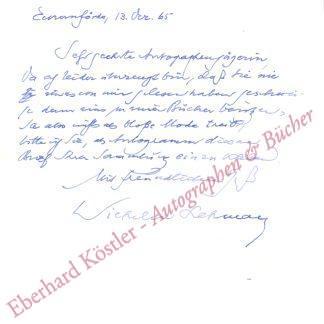 Eckernförde, 13. Dez. 65
Sehr geehrte Autographenjägerin
Da ich leider überzeugt bin, daß Sie nie
etwas von mir gelesen haben, geschwei-
ge denn eins meiner Bücher
Sie also nichts als bloße Mode treibt,
bitte ich Sie, als Autogramm diesen
Brief Ihrer Sammlung einzu
Mit freundlichem
Wilhelm Lehmann
Eberhard Köstler - Autographen & Bücher